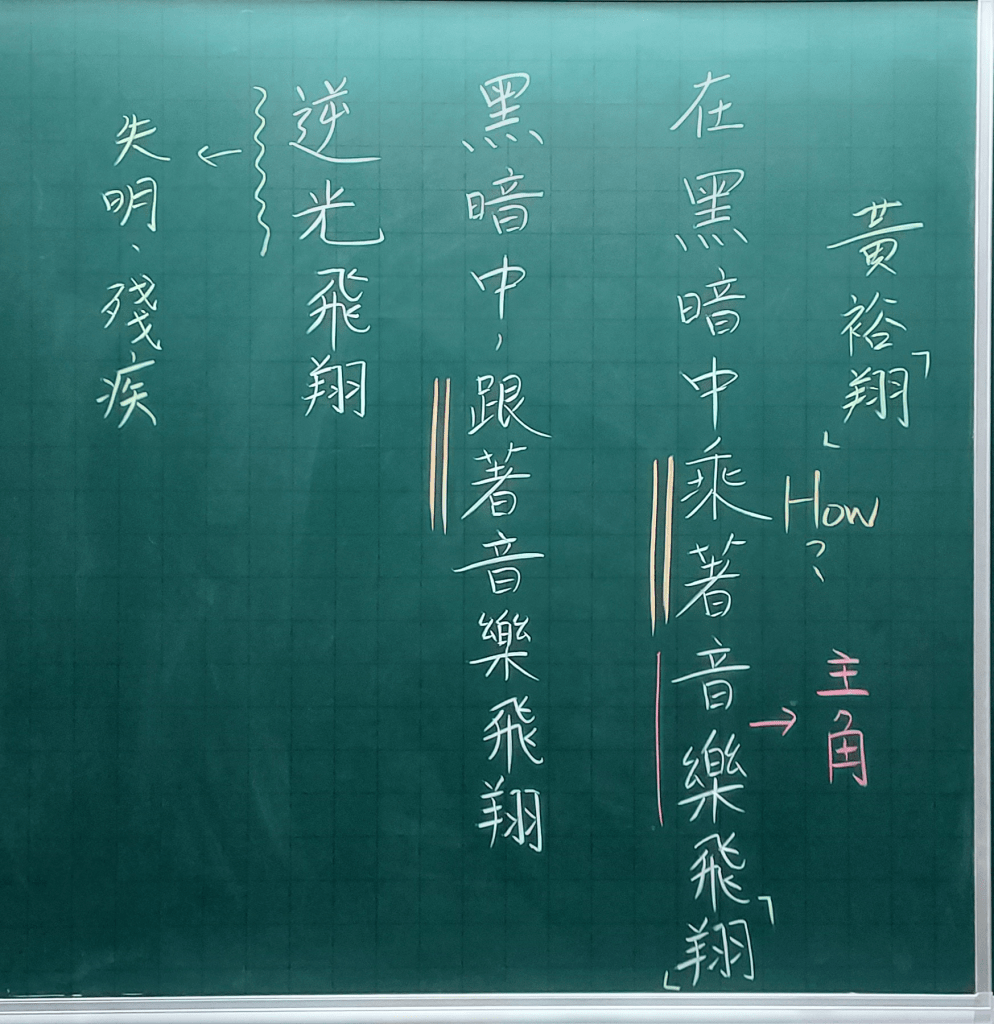 黃裕「翔」
How?
主角
在黑暗中乘著音樂飛「翔」
黑暗中，跟著音樂飛翔
逆光飛翔
失明、殘疾